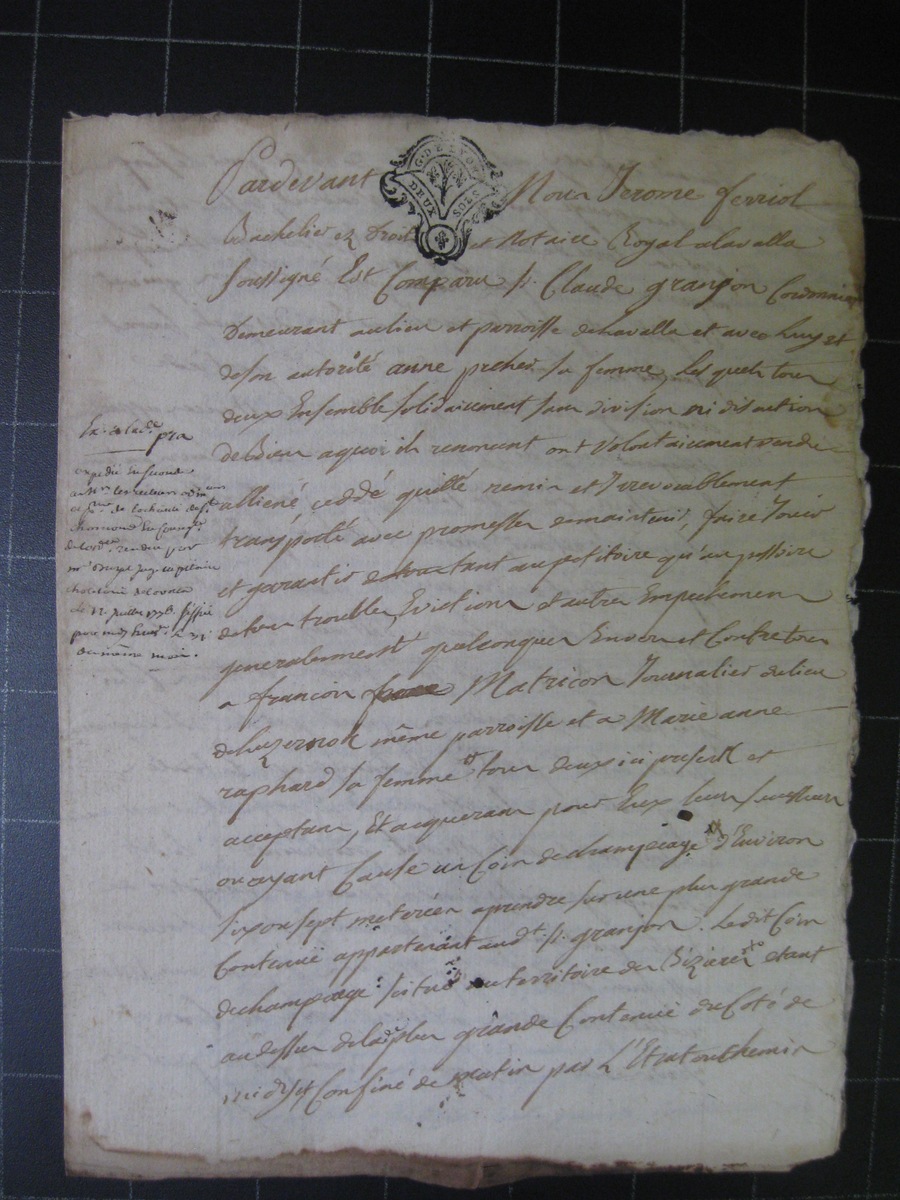 Pardevant Nous Jerome ferriol
G. DE LYON
DEUX SOLS
Bachelier en Droit et Notaire Royal alavalla
soussigné Est Comparu sr. Claude granjon Cordonnier
Demeurant au lieu et parroisse delavalla et avec luy et
de son autorité anne preher sa femme, Lesquels tous
deux Ensemble solidairement sans division ni distraction
de Bien aquoi ils renoncent ont volontairement vendu
alliené, ceddé quitté remis et Irrevocablement
transporté avec promesses demaintenir, faire Jouir
et garantir tant au petitoire qu'au possoire
detous troubles, Evictions et autres Empechemens
generalement quelconques Envers et Contre tous
a francois Matricon Journalier du lieu
de même parroisse et a Marie anne
raphard sa femme tous deux ici presents et
acceptans, Et acquerans pour Eux leurs successeurs
ou ayant Cause un Coin de champeage d'Environ
six ou sept meterées aprendre sur une plus grande
Contenue appartenant audt. sr. granjon. Ledit Coin
dechampeage situé au territoire du étant
audessus deladte plus grande Contenue du Coté de
midy et Confiné de matin par
Ex. pra
expedié en second
de
de
rendue par
mr. juge capitaine
de 12. juillet
pour
du même mois.